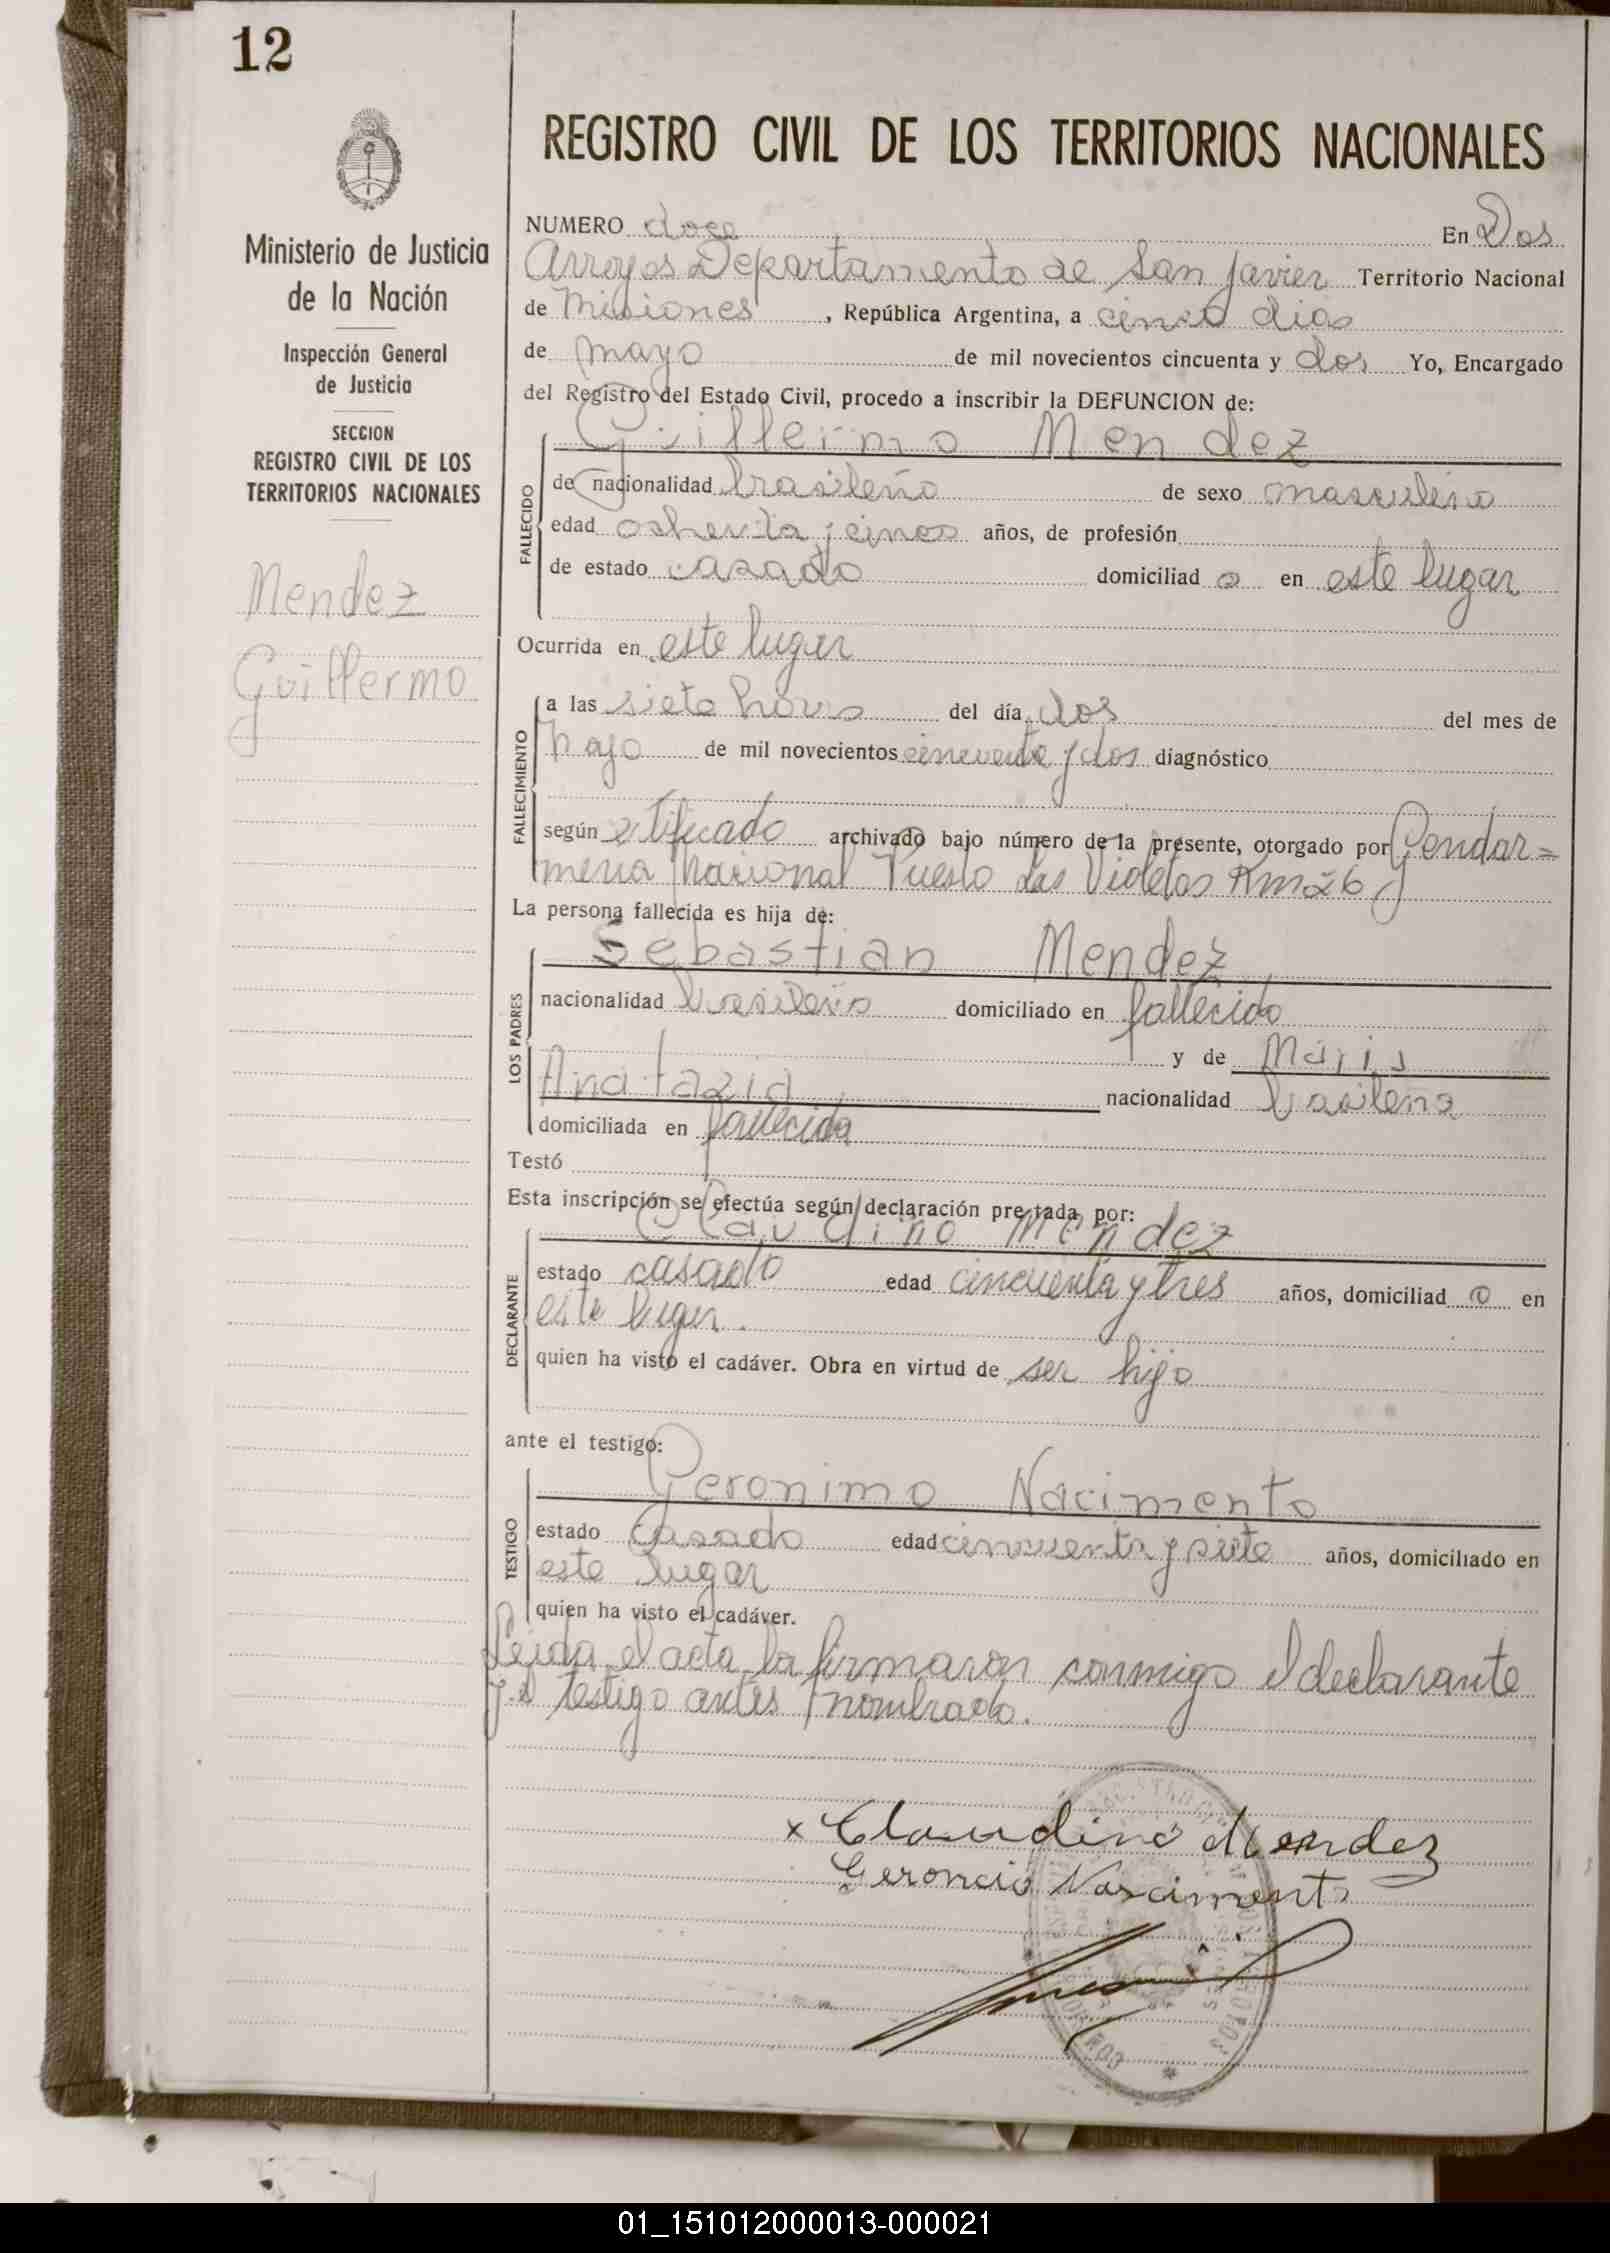 12
REGISTRO CIVIL DE LOS TERRITORIOS NACIONALES
Ministerio de Justicia
de la Nación
Inspección General
de Justicia
SECCION
REGISTRO CIVIL DE LOS
TERRITORIOS NACIONALES
Mendez
Guillermo
NUMERO doce En Dos
Arroyos Departamento de San Javier Territorio Nacional
de Misiones , República Argentina, a cinco dias
de mayo de mil novecientos cincuenta y dos Yo, Encargado
del Registro del Estado Civil, procedo a inscribir la DEFUNCION de:
Guillermo Mendez
FALLECIDO
de nacionalidad brasileño de sexo masculino
edad ochenta y cinco años, de profesión
de estado casado domiciliad o en este lugar
Ocurrida en este lugar
FALLECIMIENTO
a las siete horas del día dos del mes de
Mayo de mil novecientos cincuenta y dos diagnóstico
según certificado archivado bajo número de la presente, otorgado por Gendar=
meria Nacional Puesto Las Violetas Km 26
La persona fallecida es hija de:
LOS PADRES
Sebastian Mendez
nacionalidad brasileño domiciliado en fallecido
y de Maria
Anatazia nacionalidad brasileña
domiciliada en fallecida
Testó
Esta inscripción se efectúa según declaración pre tada por:
DECLARANTE
Claudino Mendez
estado casado edad cincuenta y tres años, domiciliad o en
este lugar.
quien ha visto el cadáver. Obra en virtud de ser hijo
ante el testigo:
TESTIGO
Geronimo Nacimento
estado Casado edad cincuenta y siete años, domiciliado en
este lugar
quien ha visto el cadáver.
Leida el acta la firmaron conmigo el declarante
y el testigo antes nombrado.
x Claudino Mendez
Nascimento
01_151012000013-000021